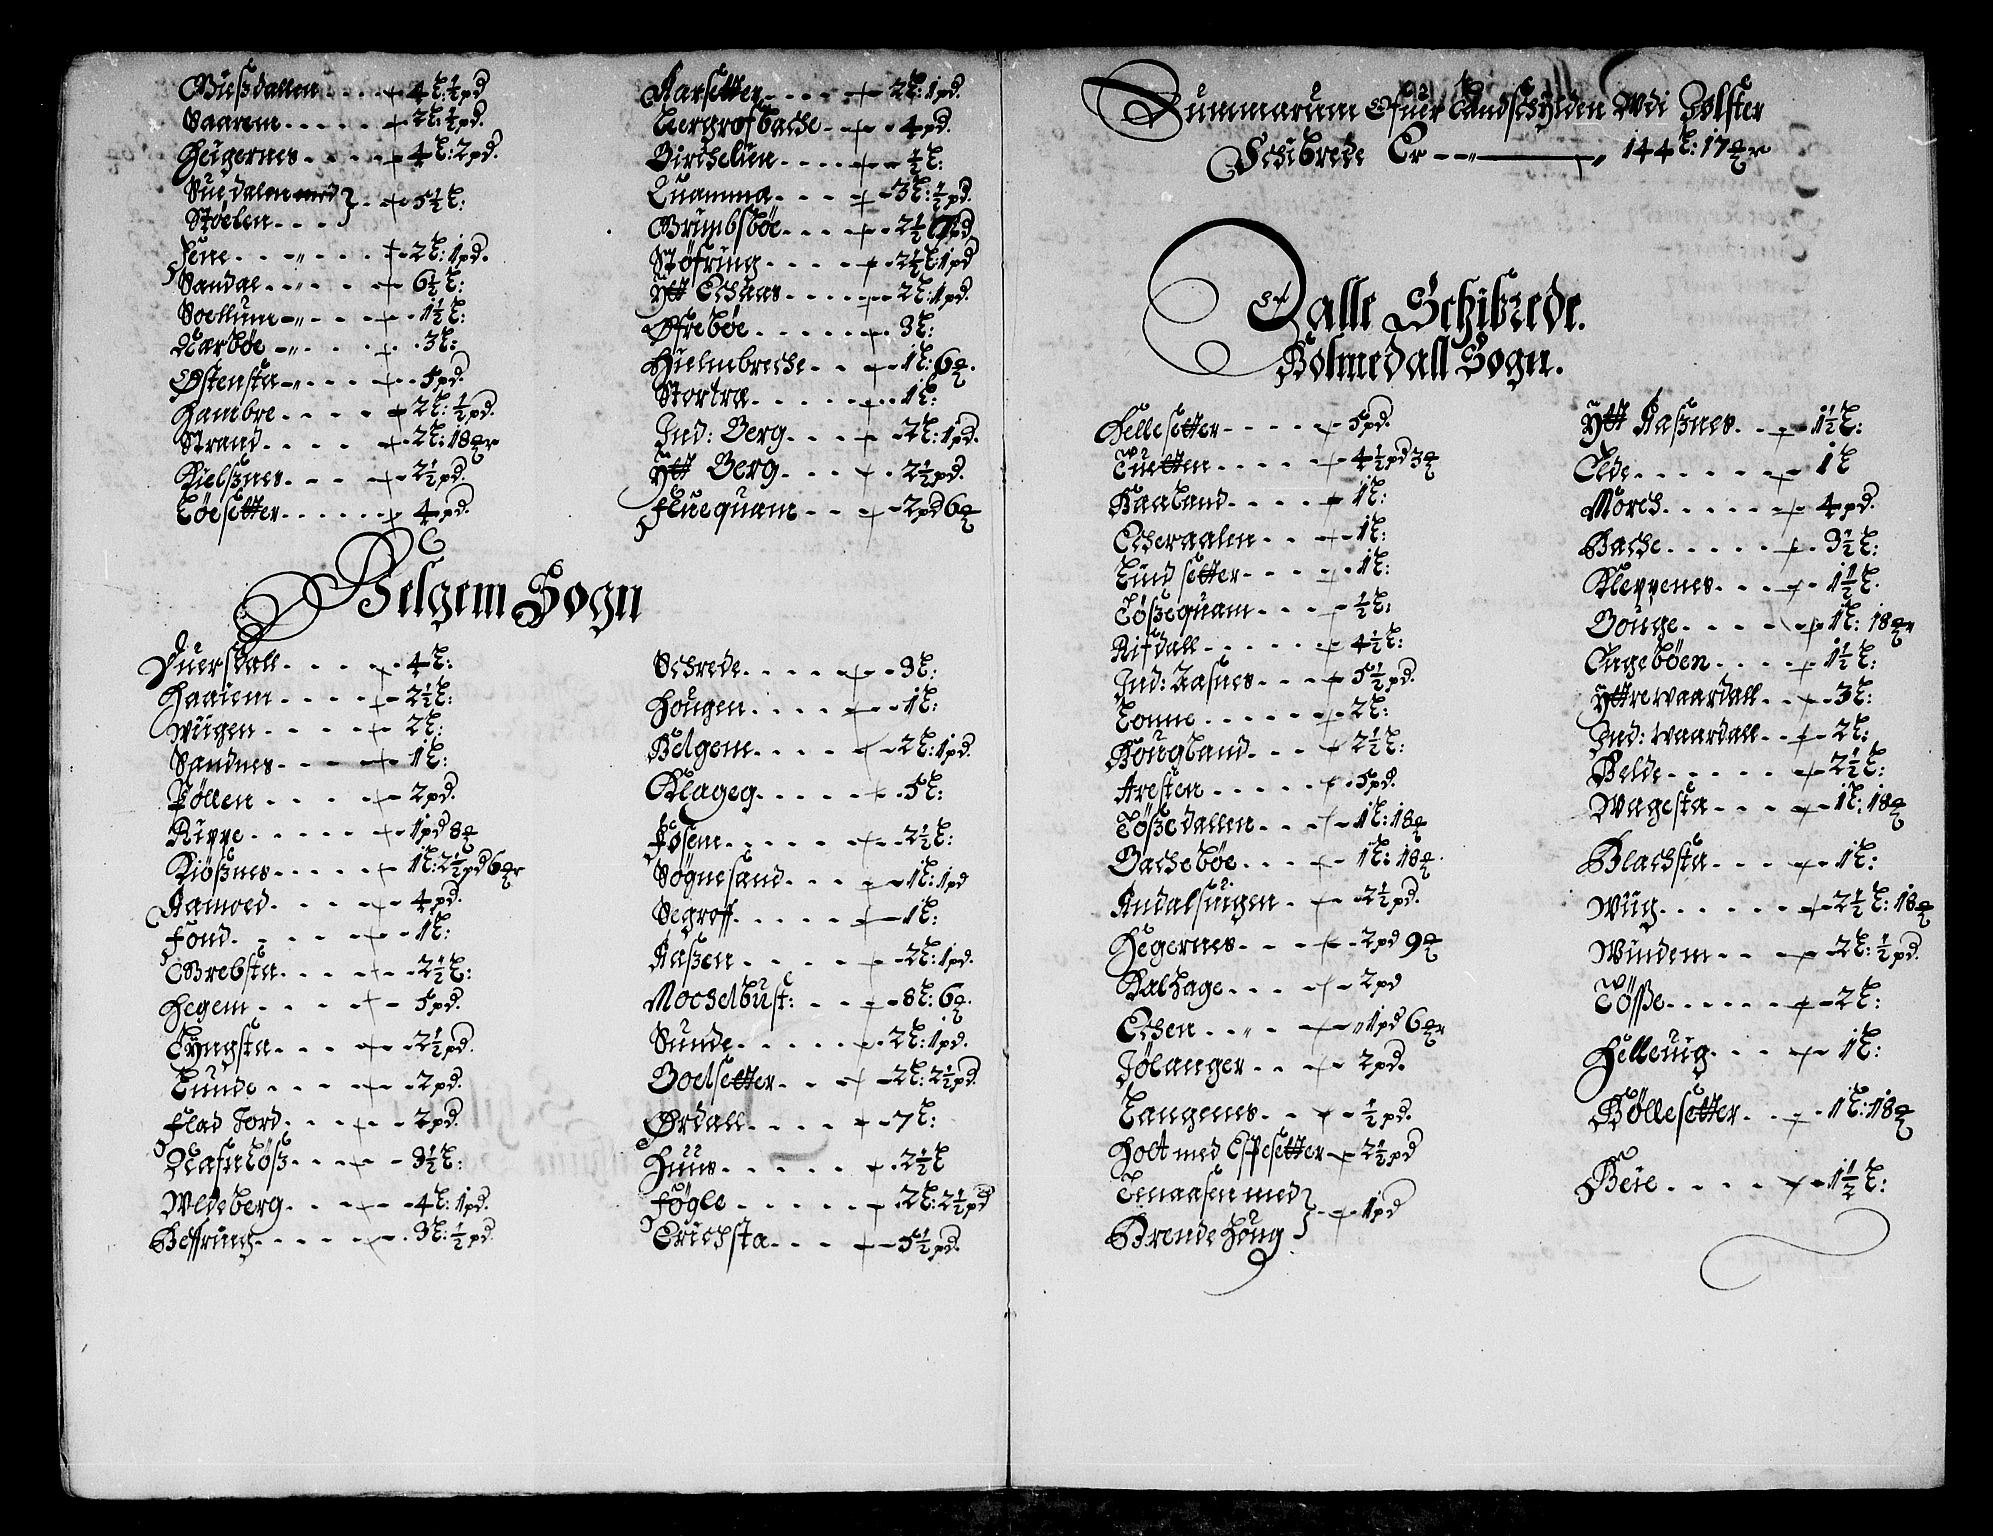 Biusdallen - - - - 4 L: ½ pd
Saarem - - - - 2 L: ½ pd.
Heigernes - - - - 4 L: 2 pd.
Suedalen med } - - 5½ L:
Stølen - - - -
Jene - - - - 2 L: 1 pd.
Sandal - - - - 6½ L:
Soellum - - - - 1½ L:
Narbøe - - - - 3 L:
Østensta - - - - 5 pd.
Hambre - - - - 2 L: ½ pd.
Strand - - - - 2 L: 18 mr
Kielsnes - - - - 2½ pd.
Løesetter - - - - 4 pd.
Aarsetter - - - - 2 L: 1 pd.
Bergrofbache - - - 4 pd.
Birchelün - - - - ½ L:
Quamma - - - - 3 L: ½ pd.
Brümbsbøe - - - - 2½ L 1 pd
Støfring - - - - 2½ L: 1 pd
Ytt Echaas - - - - 2 L: 1 pd.
Øfrebøe - - - - 3 L:
Hielmbreche - - - 1 L: 6 m.
Stortra - - - - 1 L:
Ind: Berg - - - - 2 L: 1 pd.
Ytt Berg - - - - 2½ pd.
Fluequam - - - 2 pd 6 m
Helgem Sogn
Duersdall - - - - 4 L:
Haaiem - - - - 2½ L:
Wiigen - - - - 2 L:
Sandnes - - - - 1 L:
Pøllen - - - - 2 pd.
Rippe - - - - 1 pd 8 m
Kiøsnes - - - - 1 L: 2½ pd 6 mr
Ramoed - - - - 4 pd.
Fond - - - - 1 L:
Grebsta - - - - 2½ L:
Hegem - - - - 5 pd.
Tyngsta - - - - 2½ pd.
Lunde - - - - 2 pd.
Flad Jord - - - - 2 pd.
Nafstøß - - - - 3½ L:
Wldeberg - - - - 4 L: 1 pd.
Heffring - - - - 3 L: ½ pd
Schrede - - - - 3 L:
Hougen - - - - 1 L:
Helgem - - - - 2 L: 1 pd.
Klageg - - - - 5 L:
Fosem - - - - 2½ L:
Søgnesand - - - 1 L: 1 pd
Segroff - - - - 1 L:
Aaßen - - - - 2 L: 1 pd.
Mochelbust: - - - 8 L: 6 m.
Sunde - - - - 2 L: 1 pd.
Boelsetter - - - 2 L: 2½ pd.
Ørdall - - - - 7 L:
Huus - - - - 2½ L
Fögle - - - - 2 L: 2½ pd
Erichsta - - - - 5½ pd.
Summarum Ofuer Landschylden Wdi Jolster
Schibrede Er - - - 144 L: 17 mr
Dalle Schibrede.
Holmedall Sogn.
Hellesetter - - - - 5 pd.
Tuetten - - - - 4½ pd 3 m
Haaland - - - - 1 L:
Echeraalen - - - 1 L:
Lindsetter - - - - 1 L:
Tøßequam - - - - ½ L:
Rifdall - - - - 4½ L:
Ind: Rasnes - - - 5½ pd.
Tonne - - - - 2 L:
Hougland - - - 2½ L:
Aresten - - - - 5 pd.
Tøßedallen - - - 1 L: 18 m
Bachebøe - - - 1 L: 18 m.
Andalsuigen - - - 2½ pd.
Hegernes - - - 2 pd 9 m
Halhage - - - 2 pd
Echen - - - 1 pd 6 mr
Jølanger - - - 2 pd.
Langenes - - - ½ pd.
Holt med Espesetter - 2½ pd
Tenaasen med } - - 1 pd
Brende houg
Ytt Raßnes - - - 1½ L:
Elde - - - - 1 L
Morch - - - - 4 pd.
Bache - - - - 3½ L:
Kleppenes - - - 1½ L.
Bouge - - - - 1 L: 18 mr
Engebøen - - - 1½ L:
Yttrewaardall - - 3 L:
Ind: waardall - - 2 L:
Helde - - - - 2½ L:
Wagesta - - - 1 L: 18 m
Blachsta - - - 1 L:
Wiig - - - - 2½ L: 18 m
Windem - - - 2 L: ½ pd.
Tøsse - - - - 2 L:
Helleuig - - - 1 L:
Bøllesetter - - - 1 L: 18 m
Heie - - - - 1½ L: